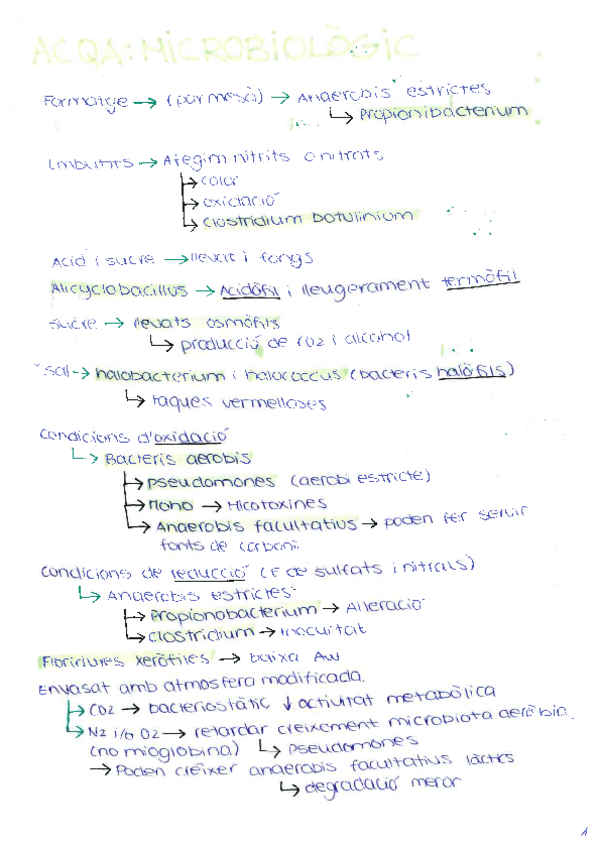 ACQA: MICROBIOLÒGIC
Formatge → (parmesà) → Anaerobis estrictes
↳ Propionibacterium
Embutits → Afegim nitrits o nitrats
→ color
→ oxidació
→ clostridium botulinium
Àcid i sucre → llevat i fongs
Alicyclobacillus → Acidòfil i lleugerament termòfil
Sucre → llevats osmòfils
↳ producció de CO2 i alcohol
Sal → halobacterium i halococcus (bacteris halòfils)
↳ taques vermelloses
Condicions d'oxidació
↳ Bacteris aerobis
→ pseudomones (aerobi estricte)
→ Moho → Micotoxines
→ Anaerobis facultatius → poden fer servir
fonts de carboni.
Condicions de reducció (F de sulfats i nitrats)
↳ Anaerobis estrictes
→ Propionobacterium → Alteració
→ clostridium → Inocuitat
Floridures xeròfiles → baixa Aw
Envasat amb atmosfera modificada.
→ CO2 → bacteriostàtic ↓ activitat metabòlica
→ N2 i/o O2 → retardar creixement microbiota aeròbia.
(no mioglobina) ↳ Pseudomones
→ Poden créixer anaerobis facultatius làctics
↳ degradació menor
1